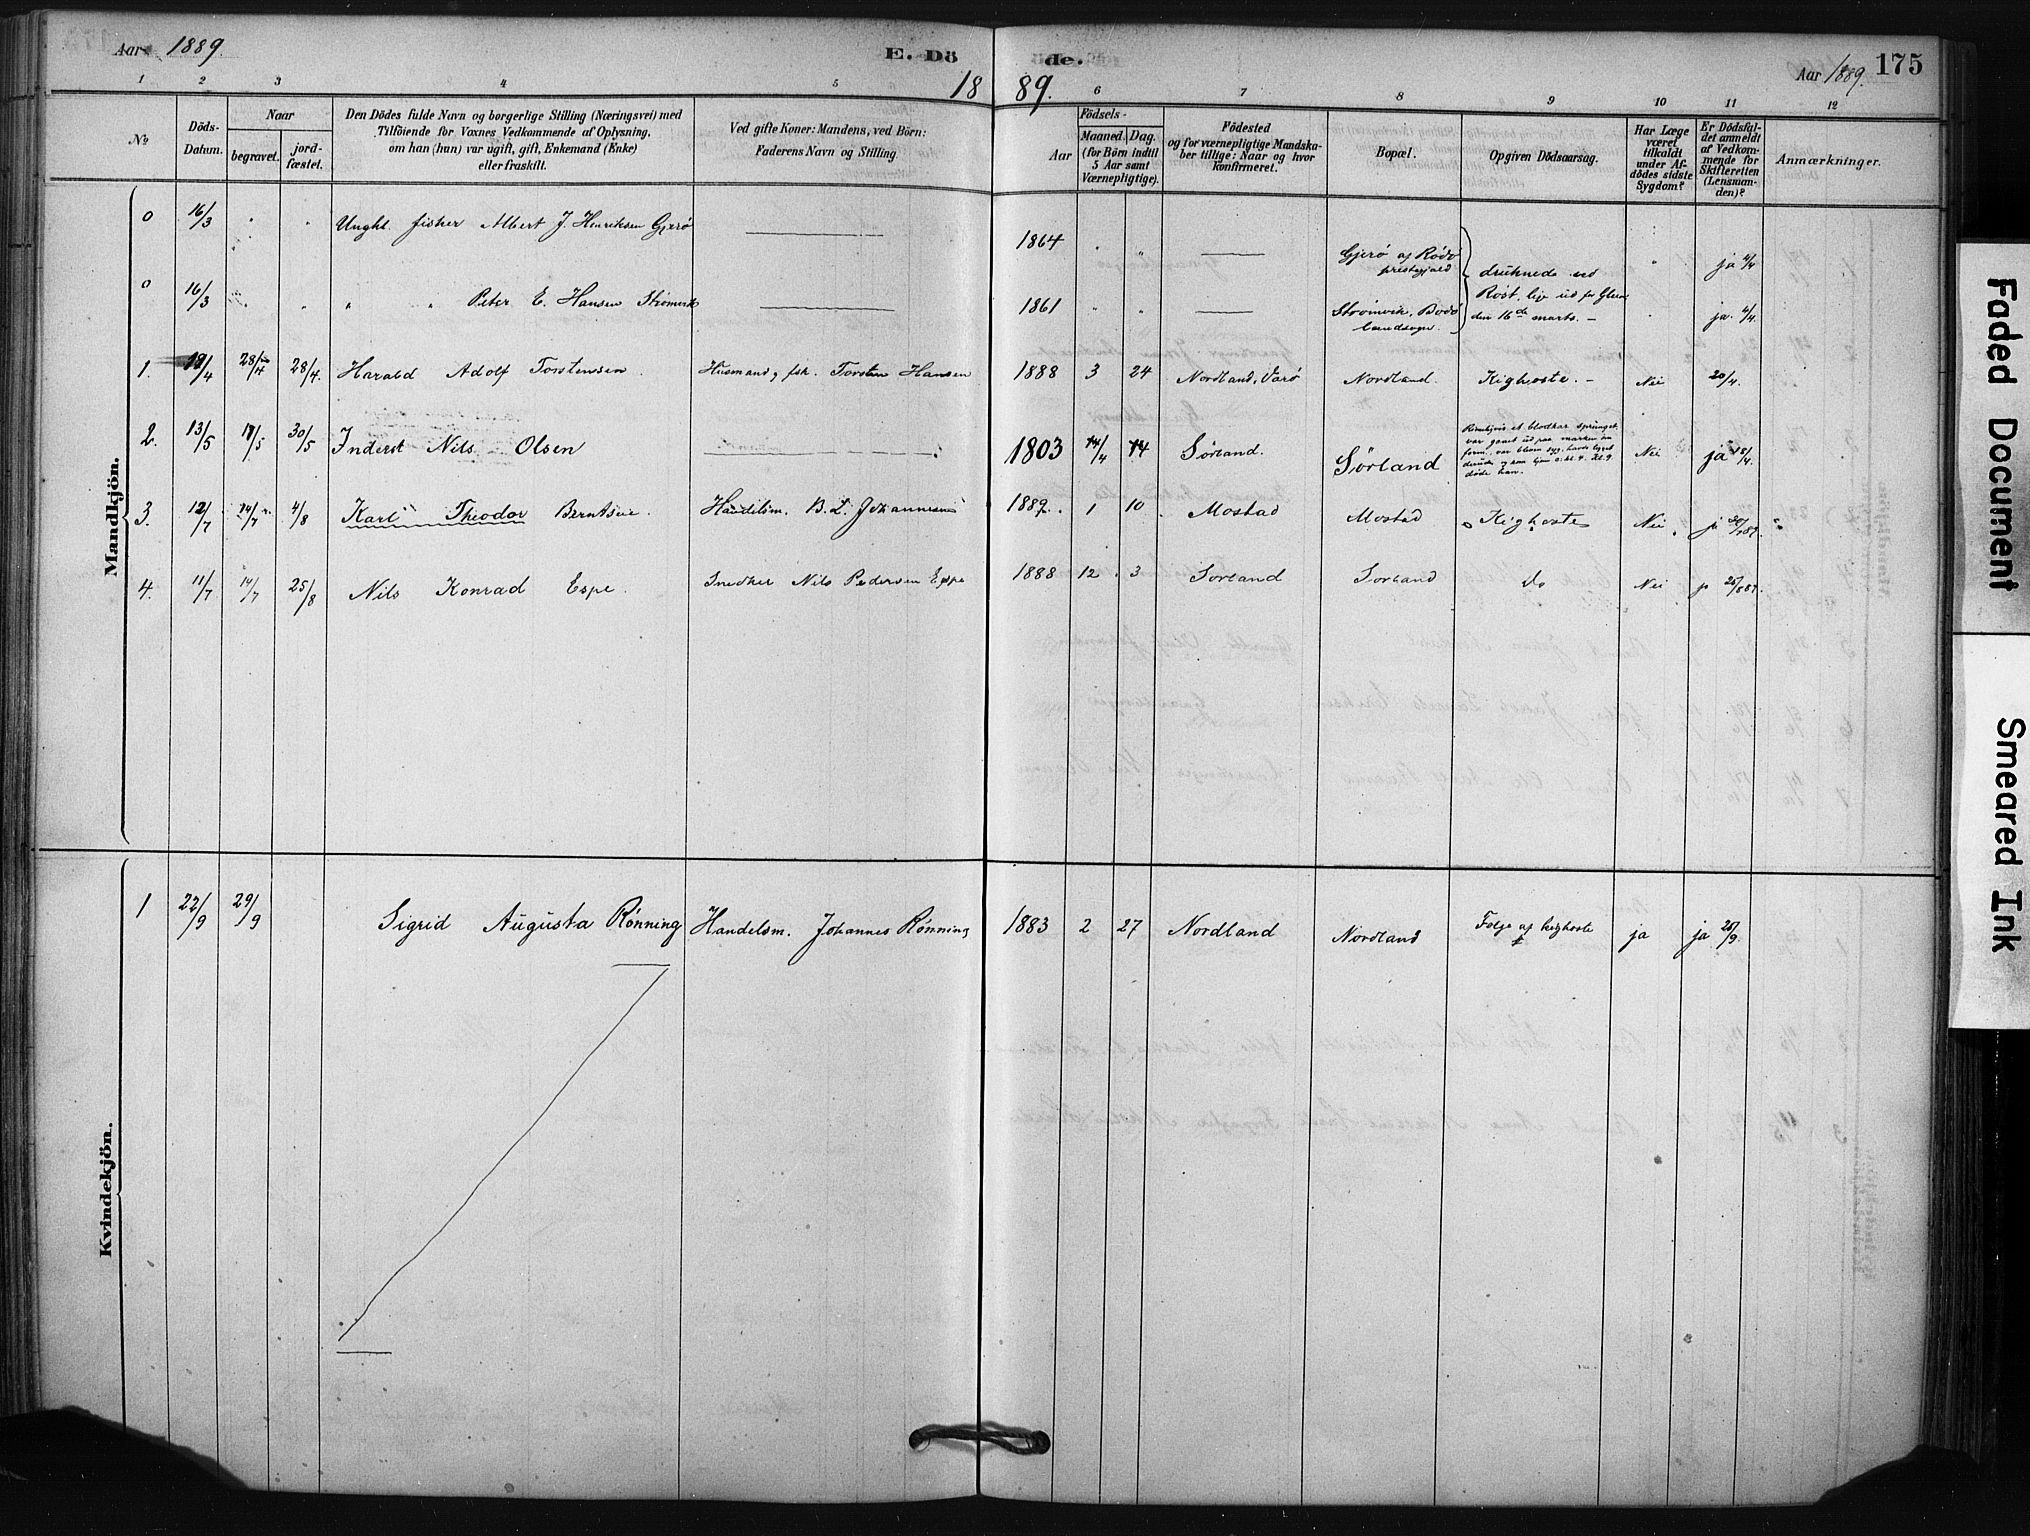 Aar 1889.
E. Dö
de.
Aar 1889. 175
18
89.
1 2 3 4 5 6 7 8 9 10 11 12
No
Döds-
Datum.
Naar
begravet.
jord-
fæstet.
Den Dödes fulde Navn og borgerlige Stilling (Næringsvei) med
Tilföiende for Voxnes Vedkommende af Oplysning,
om han (hun) var ugift, gift, Enkemand (Enke)
eller fraskilt.
Ved gifte Koner: Mandens, ved Börn:
Faderens Navn og Stilling.
Födsels-
Aar
Maaned.
Dag.
(for Börn indtil
5 Aar samt
Værnepligtige).
Födested
og for værnepligtige Mandska-
ber tillige: Naar og hvor
Konfirmeret.
Bopæl.
Opgiven Dödsaarsag.
Har Læge
været
tilkaldt
under Af-
dödes sidste
Sygdom?
Er Dödsfal-
det anmeldt
af Vedkom-
mende for
Skifteretten
(Lensman-
den)?
Anmærkninger.
Mandkjön.
0 16/3 " " Unghl. fisker Albert J. Henriksen Gjerø 1864 " " Gjerø af Rødø
prestegjeld
druknede ved
Røst, lige ud for
den 16de marts. -
" ja 4/4
0 16/3 " " " " Peter E. Hansen Strømvik 1861 " " Strømvik, Bodø
landsogn.
" ja. 4/4.
1. 18/4 28/4 28/4. Harald Adolf Torstensen. Husmand, fsk. Torsten Hansen 1888 3 24 Nordland, Værø Nordland. Kighoste. - Nei 20/4.
2. 13/5 17/5 30/5 Inderst Nils Olsen 1803 14/4 14 Sørland. Sørland
et blodkar sprunget,
Nei ja 18/4.
3. 12/7 14/7 4/8 Karl Theodor Berntsen. Handelsm. B. L. Johannesen 1889. 1 10 Mostad Mostad Kighoste Nei ja
4. 11/7 14/7 25/8 Nils Konrad Espe. Snedker Nils Pedersen Espe 1888 12 3 Sørland Sørland Do Nei ja 25/8 89.
Kvindekjön.
1 22/9 29/9 Sigrid Augusta Rønning Handelsm. Johannes Rønning 1883 2 27 Nordland Nordland Følge af kighoste ja ja 25/9.
Faded Document
Smeared Ink